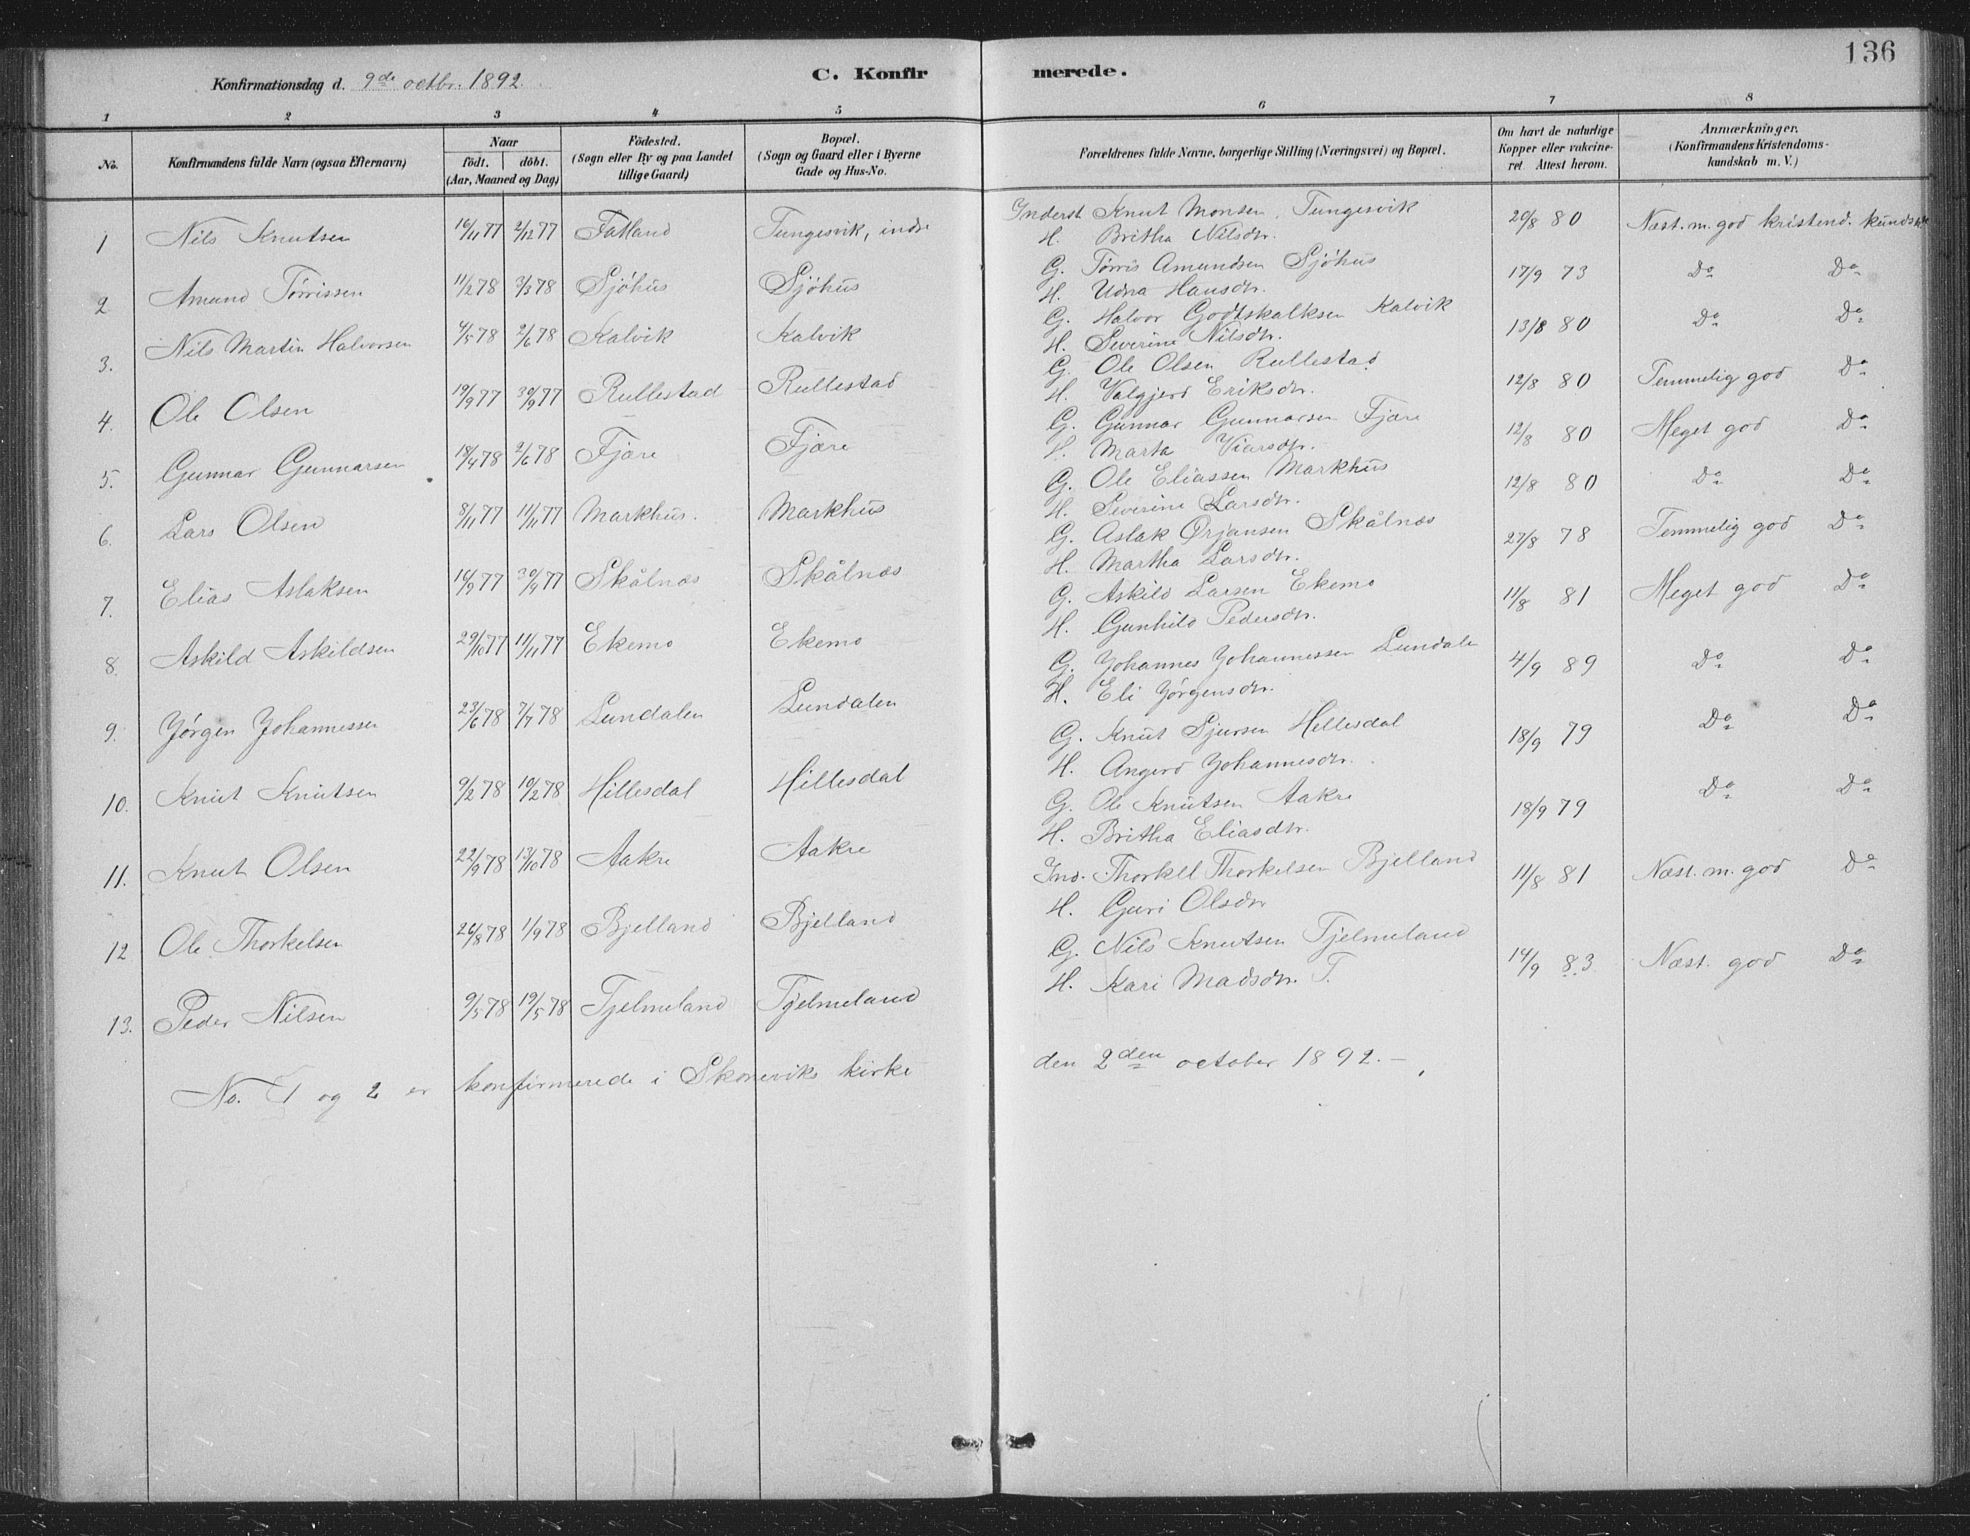 136
Konfirmationsdag d. 9de octbr. 1892.
C. Konfirmerede.
1 2 3 4 5 6 7 8
No. Konfirmandens fulde Navn (ogsaa Efternavn) Naar født. døbt. (Aar, Maaned og Dag) Fødested. (Sogn eller By og paa Landet tillige Gaard) Bopæl. (Sogn og Gaard eller i Byerne Gade og Hus-No. Forældrenes fulde Navne, borgerlige Stilling (Næringsvei) og Bopæl. Om havt de naturlige Kopper eller vakcineret. Attest herom. Anmærkninger. (Konfirmandens Kristendomskundskab m. V.)
1 Nils Knutsen 16/11 77 2/12 77 Fatland Tungesvik, indre Inderst Knut Monsen, Tungesvik H. Britha Nilsdtr. 20/8 80 Næst. m. god kristend. kundsk.
2 Amund Tørrissen 11/2 78 3/3 78 Sjöhus Sjöhus G. Tørris Amundsen Sjöhus H. Udna Hansdtr. 17/9 73 Do Do
3. Nils Martin Halvorsen 4/5 78 2/6 78 Kalvik Kalvik G. Halvor Godtskalksen Kalvik H. Severine Nilsdtr. 13/8 80 Do Do
4. Ole Olsen 19/9 77 30/9 77 Rullestad Rullestad G. Ole Olsen Rullestad H. Valgjerd Eriksdtr. 12/8 80 Temmelig god Do
5. Gunnar Gunnarsen 18/4 78 2/6 78 Fjære Fjære G. Gunnar Gunnarsen Fjære H. Marta 12/8 80 Meget god Do
6. Lars Olsen 8/11 77 11/11 77 Markhus. Markhus G. Ole Eliassen Markhus H. Severine Larsdtr. 12/8 80 Do Do
7. Elias Aslaksen 16/9 77 30/9 77 Skålnæs Skålnæs G. Aslak Ørjansen Skålnæs H. Martha Larsdtr. 27/8 78 Temmelig god Do
8. Askild Askildsen 29/10 77 11/11 77 Ekemo Ekemo G. Askild Larsen Ekemo H. Gunhild Pedersdtr. 11/8 81 Meget god Do
9. Jørgen Johannessen 23/6 78 7/7 78 Lundalen Lundalen G. Johannes Johannessen Lundale H. Eli Jørgensdtr. 4/9 89 Do Do
10. Knut Knutsen 9/2 78 10/2 78 Hillesdal Hillesdal G. Knut Sjursen Hillesdal H. Angerd Johannesdtr. 18/9 79 Do Do
11. Knut Olsen 22/9 78 13/10 78 Aakre Aakre G. Ole Knutsen Aakre H. Britha Eliasdtr. 18/9 79 Do Do
12 Ole Thorkelsen 26/8 78 1/9 78 Bjelland Bjelland Ind. Thorkel Thorkelsen Bjelland H. Guri Olsdtr 11/8 81 Næst. m. god Do
13. Peder Nilsen 9/5 78 19/5 78 Tjelmeland Tjelmeland G. Nils Knutsen Tjelmeland H. Kari Madsdtr. T. 14/9 83 Næst. god Do
No. 1 og 2 er konfirmerede i Skoneviks kirke den 2den october 1892.-